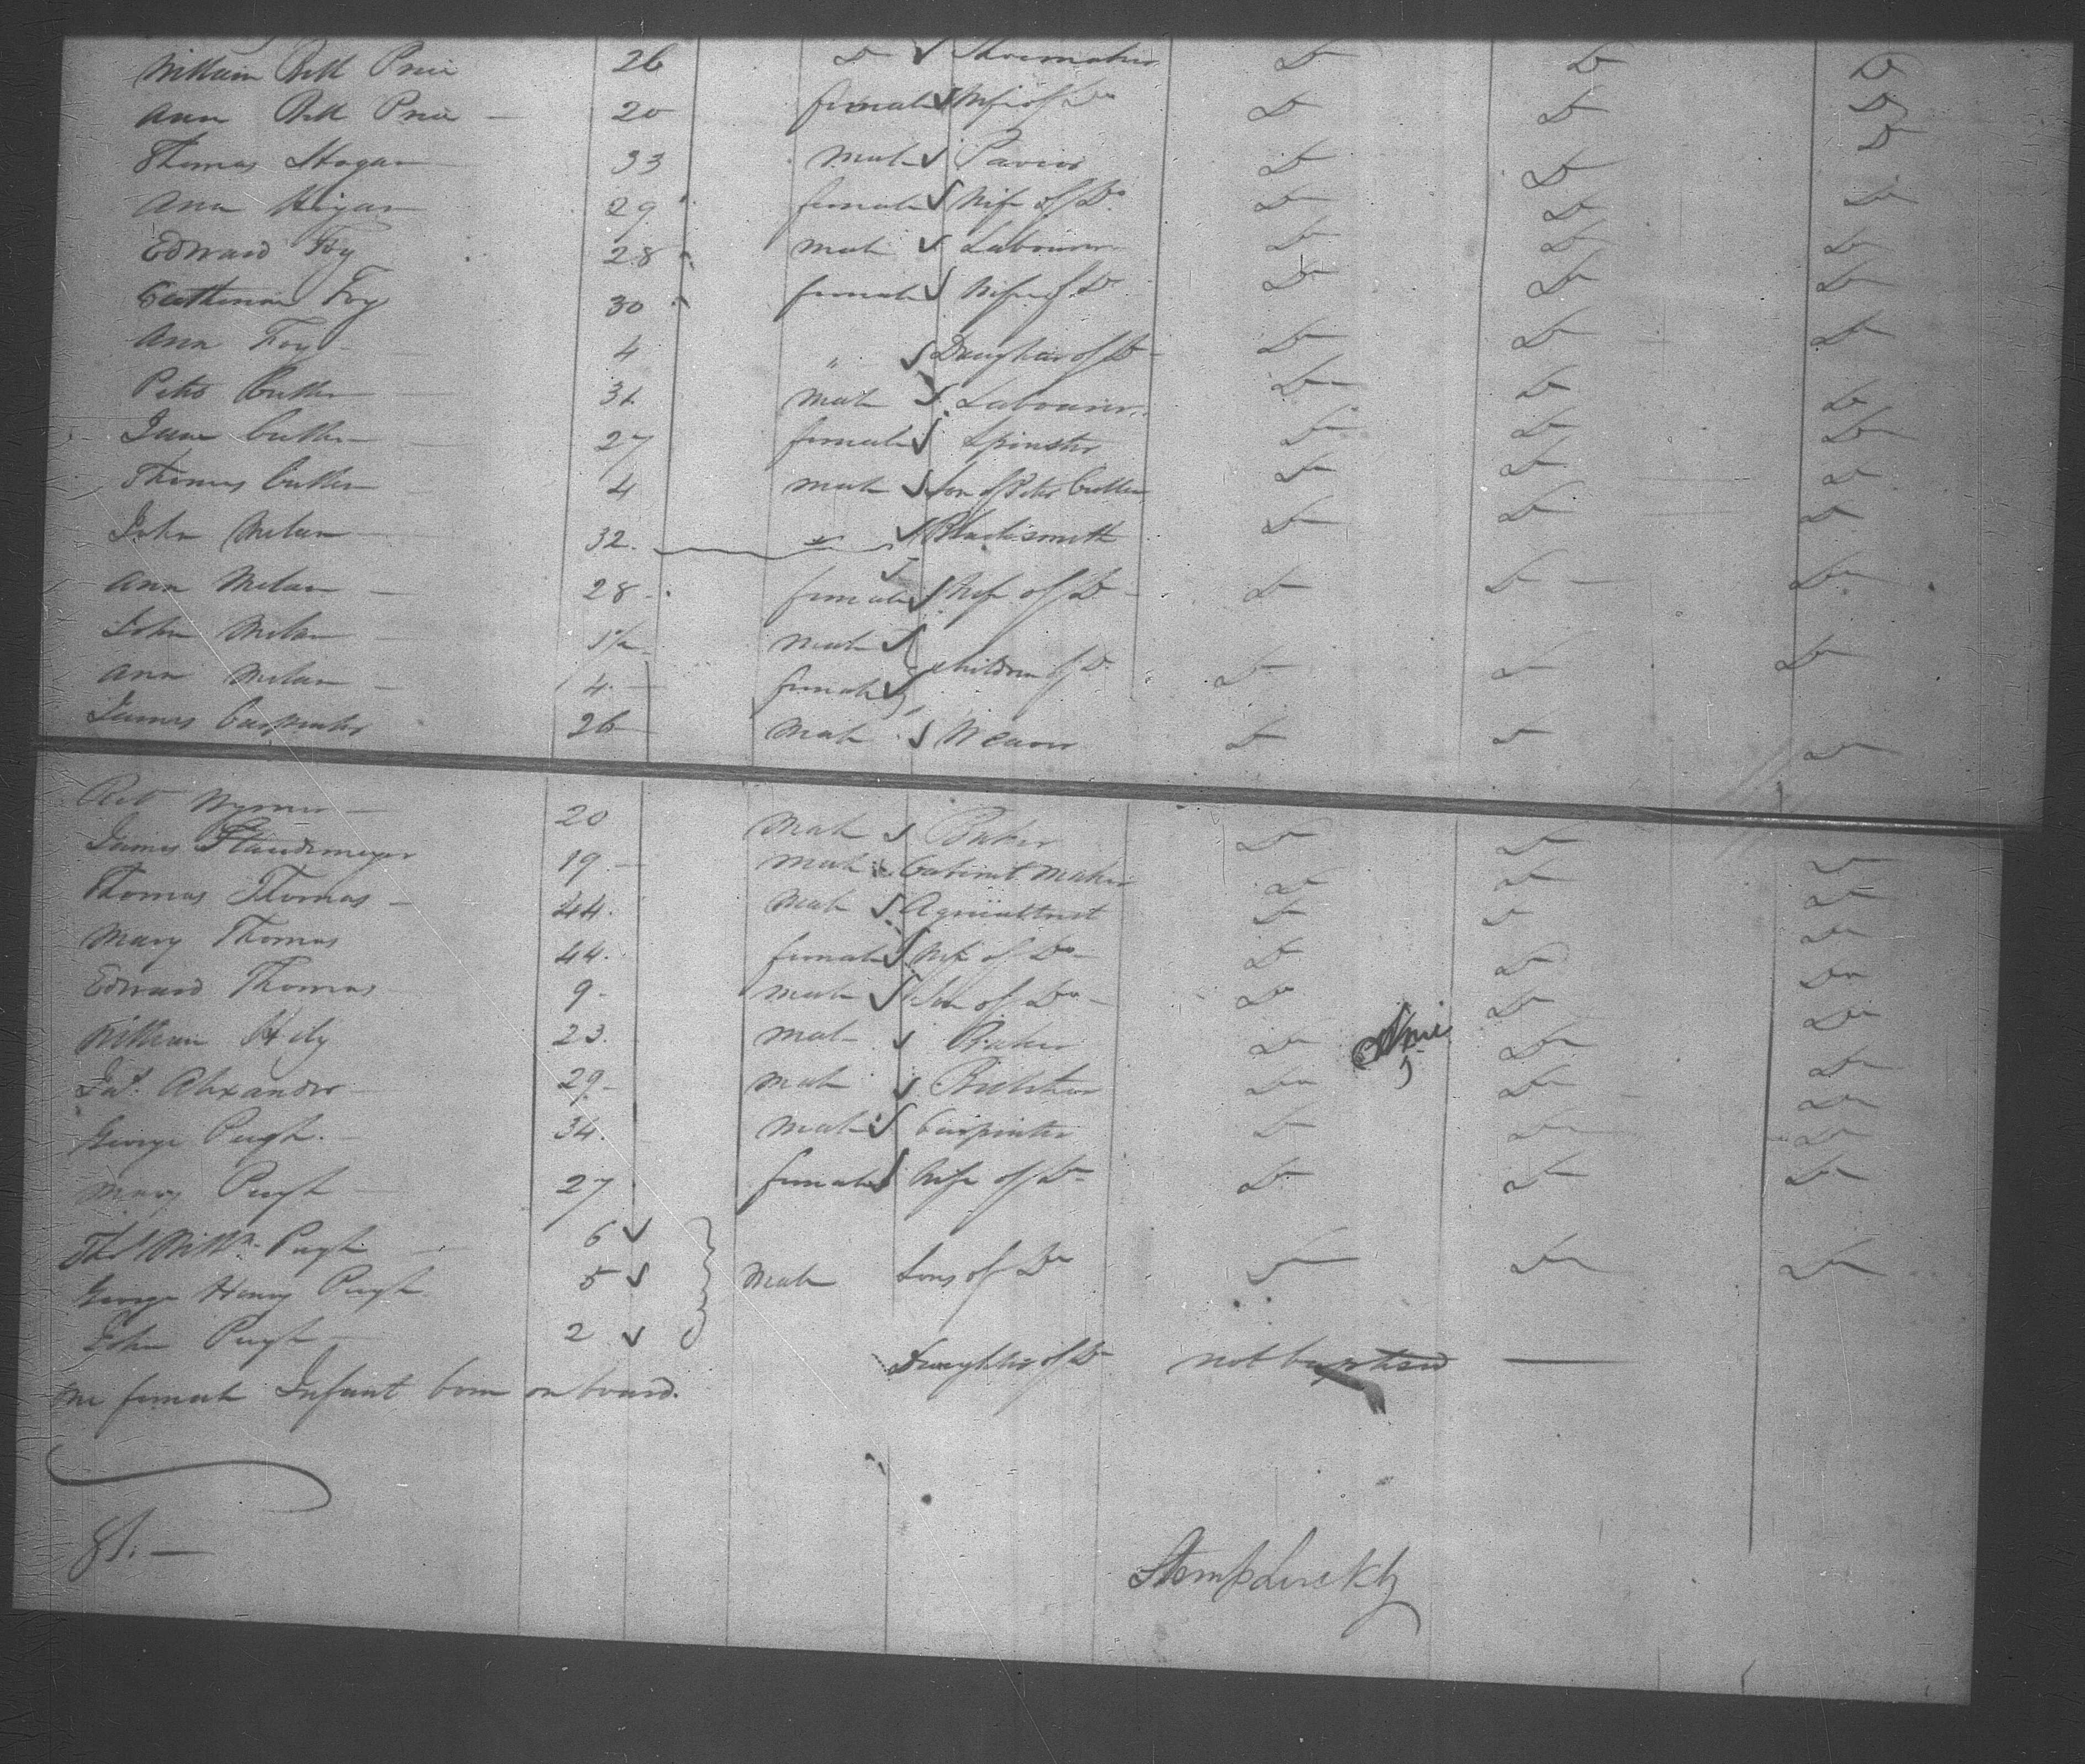 William Bell Price 26 Do Shoemaker Do Do Do
Ann Bell Price — 20 female Wife of Do Do Do Do
Thomas Hogan 33 male Pavior Do Do Do
Ann Hogan 29 female Wife of Do Do Do Do
Edward Foy 28 male Labourer Do Do Do
Catherine Foy 30 female Wife of Do Do Do Do
Ann Foy 4 " Daughter of Do Do Do Do
Peter Cullen 31 male Labourer Do Do Do
Jane Cullen 27 female Spinster Do Do Do
Thomas Cullen 4 male Son of Peter Cullen Do Do Do
John Milan 32 " Blacksmith Do Do Do
Ann Milan — 28 female Wife of Do Do Do Do
John Milan — 1½ male
Ann Milan — 4 female children of Do Do Do Do
James Carpenter 26 male Weaver Do Do Do
Rob Wymer — 20 male Baker Do Do Do
James 19 male Cabinet Maker Do Do Do
Thomas Thomas — 44 male Agricultrist Do Do Do
Mary Thomas 44 female Wife of Do Do Do Do
Edward Thomas 9 male Son of Do Do Do Do
William Hely 23 male Baker Do Do Do
Jas. Alexander 29 male Do Do Do
George Pugh 34 male Carpenter Do Do Do
Mary Pugh 27 female Wife of Do Do Do Do
Thos Willm Pugh 6
George Henry Pugh 5 male Sons of Do Do Do Do
John Pugh — 2
One female Infant born on board. Daughter of Do not baptised —
81. —